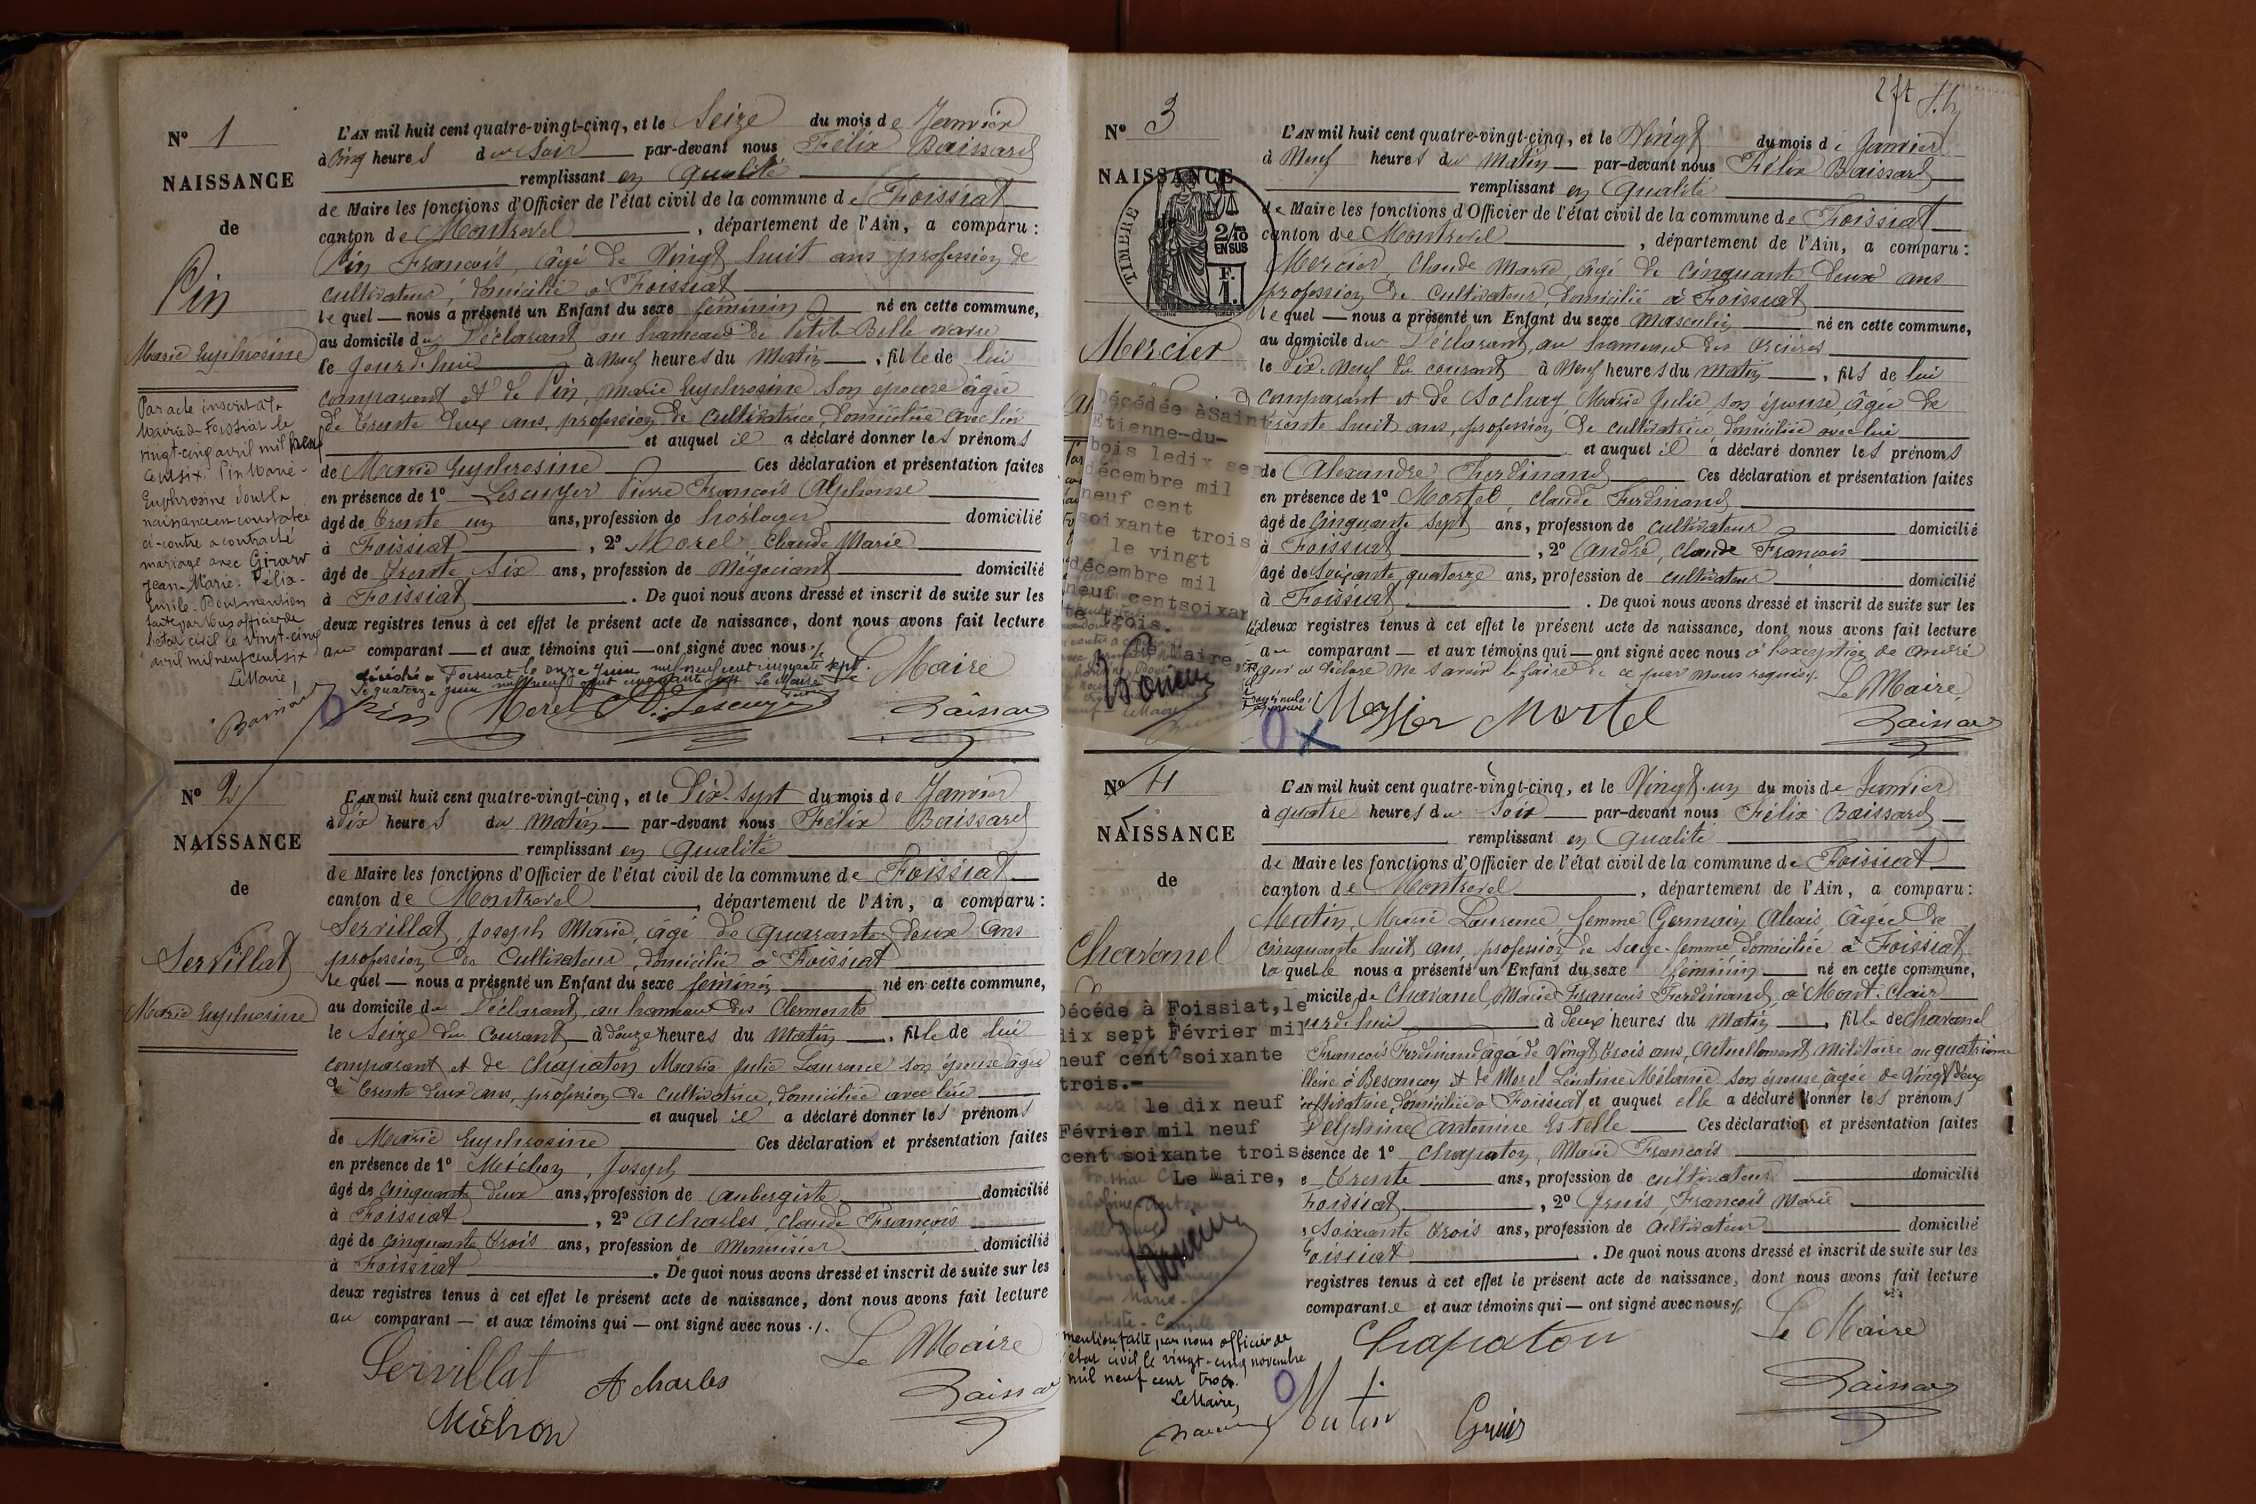 N° 1
NAISSANCE
de
Pin
Marie Euphrosine
Par acte inscrit à la
Mairie de Foissiat le
vingt-cinq avril mil neuf
cent six. Pin Marie-
Euphrosine dont la
naissance est constatée
ci-contre a contracté
mariage avec Girard
Jean-Marie-Félix-
Emile. Dont mention
faite par Nous officier de
l'état civil le vingt-cinq
avril mil neuf cent six
Le Maire,
L'AN mil huit cent quatre-vingt-cinq, et le Seize du mois de Janvier
à Cinq heures du Soir par-devant nous Félix Baissard
remplissant en qualité
de Maire les fonctions d'Officier de l'état civil de la commune de Foissiat
canton de Montrevel, département de l'Ain, a comparu :
Pin François, âgé de Vingt huit ans profession de
cultivateur, domicilié à Foissiat
le quel — nous a présenté un Enfant du sexe féminin né en cette commune,
au domicile du Déclarant au hameau de Petite Belle
le jourd'hui à Neuf heures du Matin, fille de lui
comparant et de Pin, Marie Euphrosine son épouse âgée
de Trente deux ans, profession de cultivatrice, domiciliée avec lui
et auquel il a déclaré donner les prénoms
de Marie Euphrosine Ces déclaration et présentation faites
en présence de 1° Lescuyer Pierre François Alphonse
âgé de Trente un ans, profession de horloger domicilié
à Foissiat, 2° Morel Claude Marie
âgé de Trente Six ans, profession de Négociant domicilié
à Foissiat. De quoi nous avons dressé et inscrit de suite sur les
deux registres tenus à cet effet le présent acte de naissance, dont nous avons fait lecture
au comparant — et aux témoins qui — ont signé avec nous ./.
décédée à Foissiat le onze juin mil neuf cent cinquante sept.
Le quatorze juin mil neuf cent cinquante sept Le Maire
Le Maire
Pin Morel Lescuyer Baissard
N° 2
NAISSANCE
de
Servillat
Marie Euphrosine
L'AN mil huit cent quatre-vingt-cinq, et le Dix-Sept du mois de Janvier
à dix heures du Matin par-devant nous Félix Baissard
remplissant en qualité
de Maire les fonctions d'Officier de l'état civil de la commune de Foissiat
canton de Montrevel, département de l'Ain, a comparu :
Servillat, Joseph Marie, âgé de quarante deux ans
profession de Cultivateur, domicilié à Foissiat
le quel — nous a présenté un Enfant du sexe féminin né en cette commune,
au domicile du Déclarant, au hameau des Clermonts
le Seize du Courant à douze heures du Matin, fille de lui
comparant et de Chapaton Marie Julie Laurence son épouse âgée
de trente deux ans, profession de cultivatrice, domiciliée avec lui
et auquel il a déclaré donner les prénoms
de Marie Euphrosine Ces déclaration et présentation faites
en présence de 1° Michon, Joseph
âgé de Cinquante deux ans, profession de Aubergiste domicilié
à Foissiat, 2° Acharles, Claude François
âgé de cinquante trois ans, profession de Menuisier domicilié
à Foissiat. De quoi nous avons dressé et inscrit de suite sur les
deux registres tenus à cet effet le présent acte de naissance, dont nous avons fait lecture
au comparant — et aux témoins qui — ont signé avec nous ./.
Le Maire
Servillat Acharles Baissard
Michon
2 ft
N° 3
NAISSANCE
TIMBRE
2/10
EN SUS
F.
1.
Mercier
Décédée à Saint
Etienne-du-
bois ledix sept
décembre mil
neuf cent
soixante trois
le vingt
décembre mil
neuf centsoixan
te trois.
Le Maire,
L'AN mil huit cent quatre-vingt-cinq, et le Vingt du mois de Janvier
à Neuf heures du Matin par-devant nous Félix Baissard
remplissant en qualité
de Maire les fonctions d'Officier de l'état civil de la commune de Foissiat
canton de Montrevel, département de l'Ain, a comparu :
Mercier, Claude Marie, âgé de Cinquante deux ans
profession de Cultivateur, domicilié à Foissiat
le quel — nous a présenté un Enfant du sexe masculin né en cette commune,
au domicile du Déclarant, au hameau des
le Dix-Neuf du courant à Neuf heures du Matin, fils de lui
comparant et de Sochay, Marie Julie, son épouse, âgée de
trente huit ans, profession de cultivatrice, domiciliée avec lui
et auquel il a déclaré donner les prénoms
de Alexandre Ferdinand Ces déclaration et présentation faites
en présence de 1° Mortel, Claude Ferdinand
âgé de Cinquante sept ans, profession de cultivateur domicilié
à Foissiat, 2° André, Claude François
âgé de Soixante quatorze ans, profession de cultivateur domicilié
à Foissiat. De quoi nous avons dressé et inscrit de suite sur les
deux registres tenus à cet effet le présent acte de naissance, dont nous avons fait lecture
au comparant — et aux témoins qui — ont signé avec nous à l'exception de André
qui a déclaré ne savoir le faire de ce par nous requis ./.
Le Maire
Mercier Mortel Baissard
N° 4
NAISSANCE
de
Charanel
Décéde à Foissiat, le
dix sept Février mil
neuf cent soixante
trois.-
le dix neuf
Février mil neuf
cent soixante trois
Le Maire,
mention faite par nous officier de
l'état civil le vingt-cinq novembre
mil neuf cent trois.
Le Maire,
L'AN mil huit cent quatre-vingt-cinq, et le Vingt-un du mois de Janvier
à quatre heures du Soir par-devant nous Félix Baissard
remplissant en qualité
de Maire les fonctions d'Officier de l'état civil de la commune de Foissiat
canton de Montrevel, département de l'Ain, a comparu :
Mutin, Marie Laurence, femme Germain Alexis, âgée de
cinquante huit ans, profession de Sage-femme domiciliée à Foissiat
la quelle nous a présenté un Enfant du sexe féminin né en cette commune,
micile de Charanel, Marie François Ferdinand, à Mont-Clair
urd'hui à Deux heures du Matin, fille de Charanel
François Ferdinand âgé de Vingt trois ans, Actuellement Militaire au quatrième
llerie à Besançon et de Morel Léontine Mélanie son épouse âgée de Vingt deux
cultivatrice, domiciliée à Foissiat et auquel elle a déclaré donner les prénoms
Delphine Antonine Estelle Ces déclaration et présentation faites
ésence de 1° Chapaton, Marie François
e Trente ans, profession de cultivateur domicilié
Foissiat, 2° Gruis, François Marie
Soixante trois ans, profession de Cultivateur domicilié
Foissiat. De quoi nous avons dressé et inscrit de suite sur les
registres tenus à cet effet le présent acte de naissance, dont nous avons fait lecture
comparante et aux témoins qui — ont signé avec nous ./.
Le Maire
Chapaton Baissard
Mutin Gruis